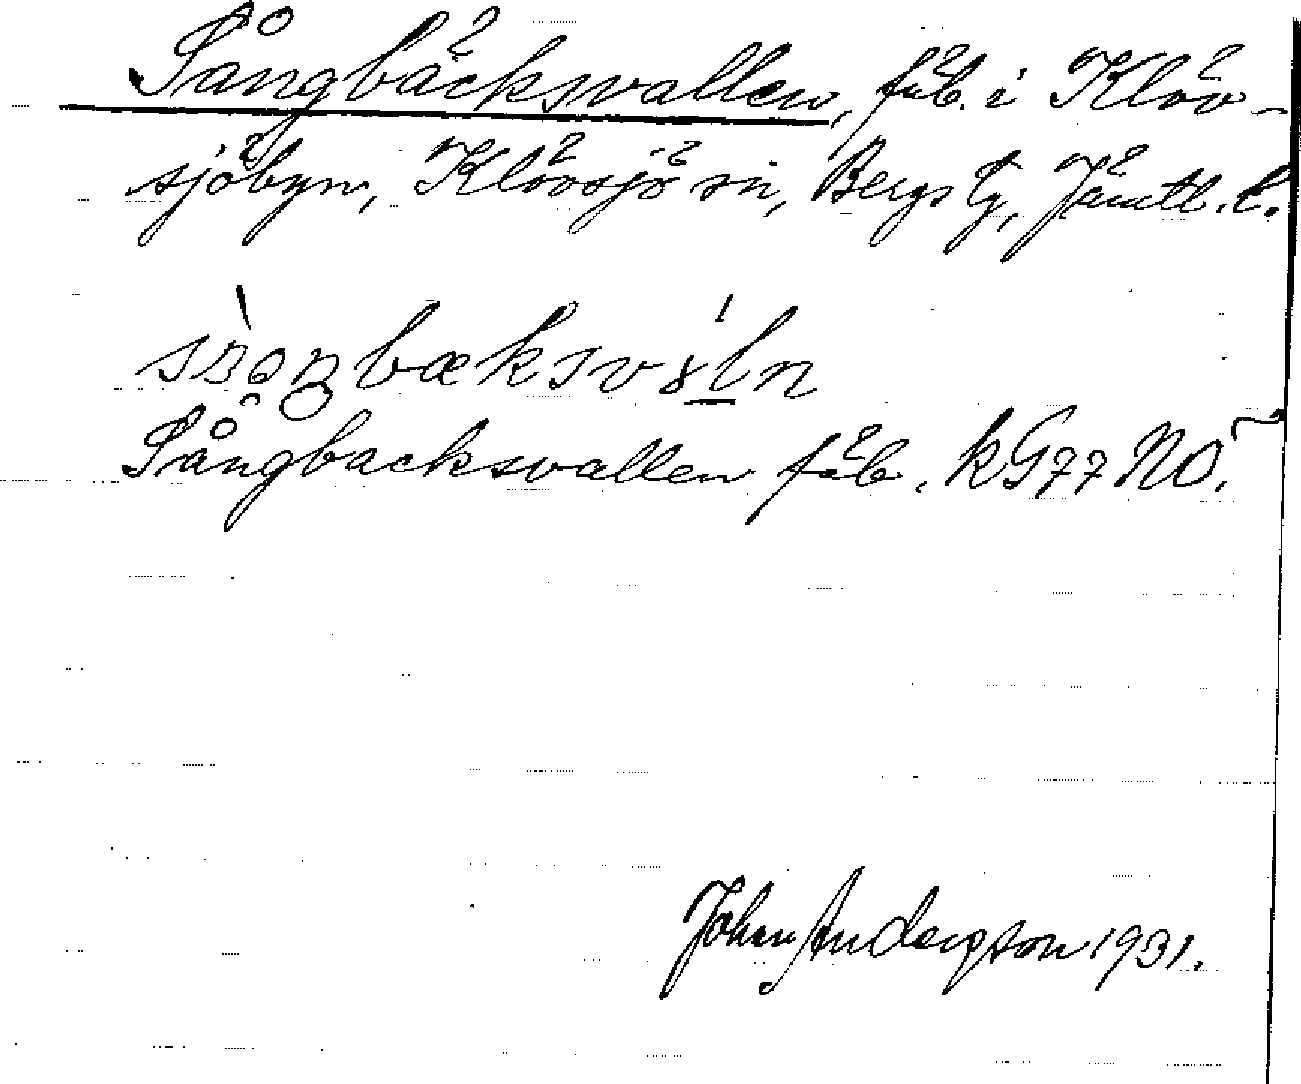 Sångbäcksvallen, fäb. i Klöv-
sjöbyn, Klövsjö sn, Bergs tg, Jämtl. l.
Sångbacksvallen fäb. k G77 NO.
John Andersson 1931.